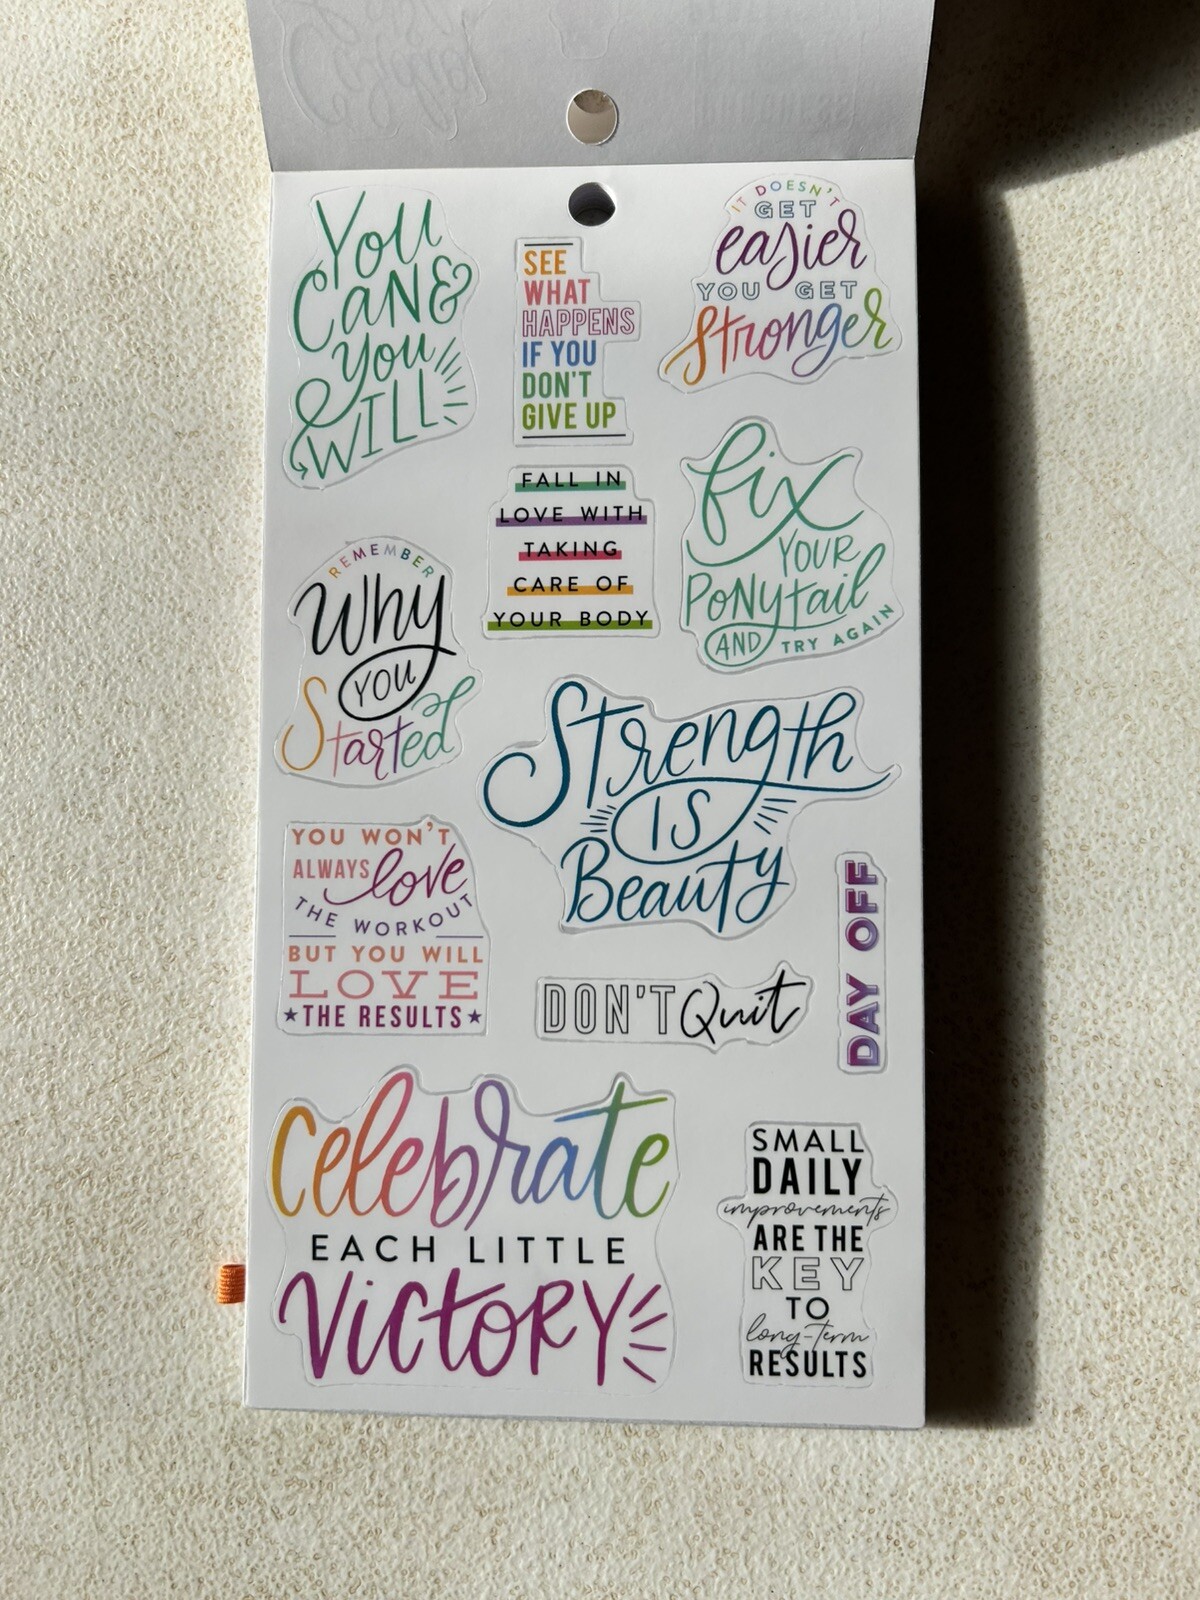 You
CaN &
you
WILL
SEE
WHAT
HAPPENS
IF YOU
DON'T
GIVE UP
IT DOESN'T
GET
easier
YOU GET
Stronger
FALL IN
LOVE WITH
TAKING
CARE OF
YOUR BODY
fix
YOUR
PoNytail
AND TRY AGAIN
REMEMBER
Why
YOU
Started
Strength
IS
Beauty
YOU WON'T
ALWAYS love
THE WORKOUT
BUT YOU WILL
LOVE
★THE RESULTS★
DON'T Quit
DAY OFF
Celebrate
EACH LITTLE
VictoRY
SMALL
DAILY
improvements
ARE THE
KEY
TO
long-term
RESULTS